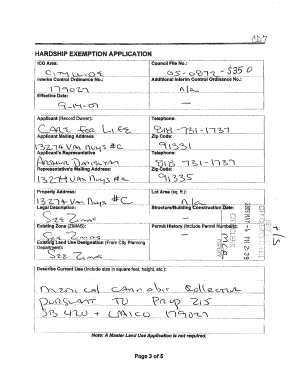 CD7
HARDSHIP EXEMPTION APPLICATION
ICO Area: Council File No.:
CITYWIDE 05-0872-S350
Interim Control Ordinance No.: Additional Interim Control Ordinance No.:
179027 n/a
Effective Date:
9-14-07
Applicant (Record Owner): Telephone:
CARE for LIFE 818-731-1737
Applicant Mailing Address Zip Code:
13274 Van Nuys #C 91331
Applicant's Representative Telephone:
818 731-1737
Representative's Mailing Address: Zip Code:
13274 Van Nuys 91335
Property Address: Lot Area (sq. ft.):
13274 Van Nuys #C n/a
Legal Description: Structure/Building Construction Date:
See Zimas
Existing Zone (ZIMAS): Permit History (Include Permit Numbers):
See Zimas
Existing Land Use Designation (From City Planning Department):
See Zimas
CITY CLERK
Describe Current Use (Include size in square feet, height, etc.):
Medical Cannabis Collective
pursuant to Prop 215
SB 420 + LAICO 179027
Note: A Master Land Use Application is not required.
Page 3 of 5